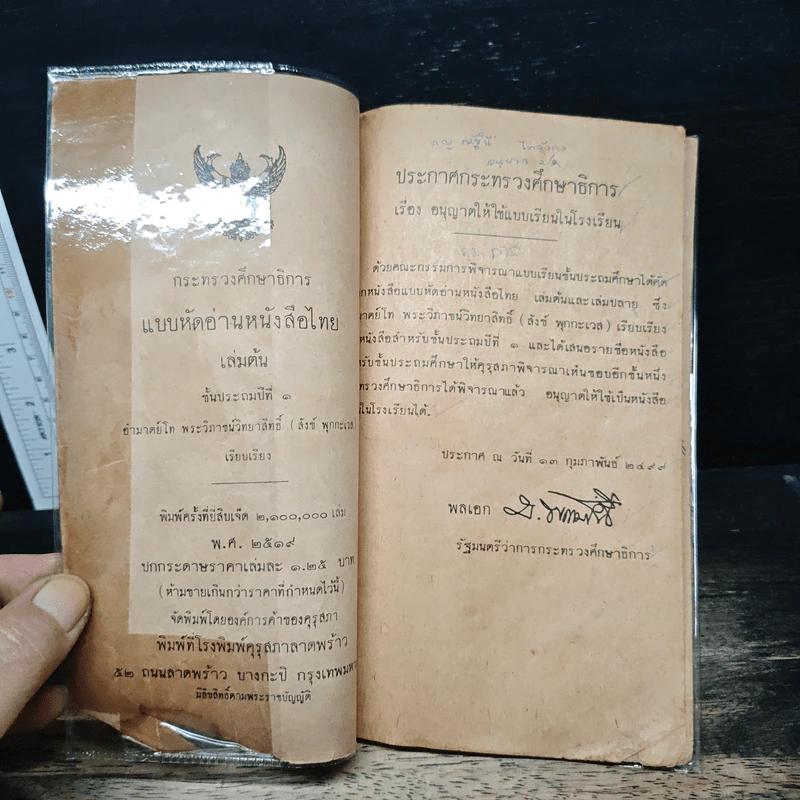 กระทรวงศึกษาธิการ
แบบหัดอ่านหนังสือไทย
เล่มต้น
ชั้นประถมปีที่ ๑
อำมาตย์โท พระวิภาชน์วิทยาสิทธิ์ (สังข์ พุกกะเวส)
เรียบเรียง
พิมพ์ครั้งที่ยี่สิบเจ็ด ๒,๑๐๐,๐๐๐ เล่ม
พ.ศ. ๒๕๑๙
ปกกระดาษราคาเล่มละ ๑.๒๕ บาท
(ห้ามขายเกินกว่าราคาที่กำหนดไว้นี้)
จัดพิมพ์โดยองค์การค้าของคุรุสภา
พิมพ์ที่โรงพิมพ์คุรุสภาลาดพร้าว
๕๒ ถนนลาดพร้าว บางกะปิ
มีลิขสิทธิ์ตามพระราชบัญญัติ
ประกาศกระทรวงศึกษาธิการ
เรื่อง อนุญาตให้ใช้แบบเรียนในโรงเรียน
ด้วยคณะกรรมการพิจารณาแบบเรียนชั้นประถมศึกษาได้คัด
หนังสือแบบหัดอ่านหนังสือไทย เล่มต้นและเล่มปลาย ซึ่ง
พระวิภาชน์วิทยาสิทธิ์ (สังข์ พุกกะเวส) เรียบเรียง
หนังสือสำหรับชั้นประถมปีที่ ๑ และได้เสนอรายชื่อหนังสือ
ชั้นประถมศึกษาให้คุรุสภาพิจารณาเห็นชอบอีกชั้นหนึ่ง
ศึกษาธิการได้พิจารณาแล้ว อนุญาตให้ใช้เป็นหนังสือ
ในโรงเรียนได้.
ประกาศ ณ วันที่ ๑๓ กุมภาพันธ์ ๒๔๙๙
พลเอก
รัฐมนตรีว่าการกระทรวงศึกษาธิการ